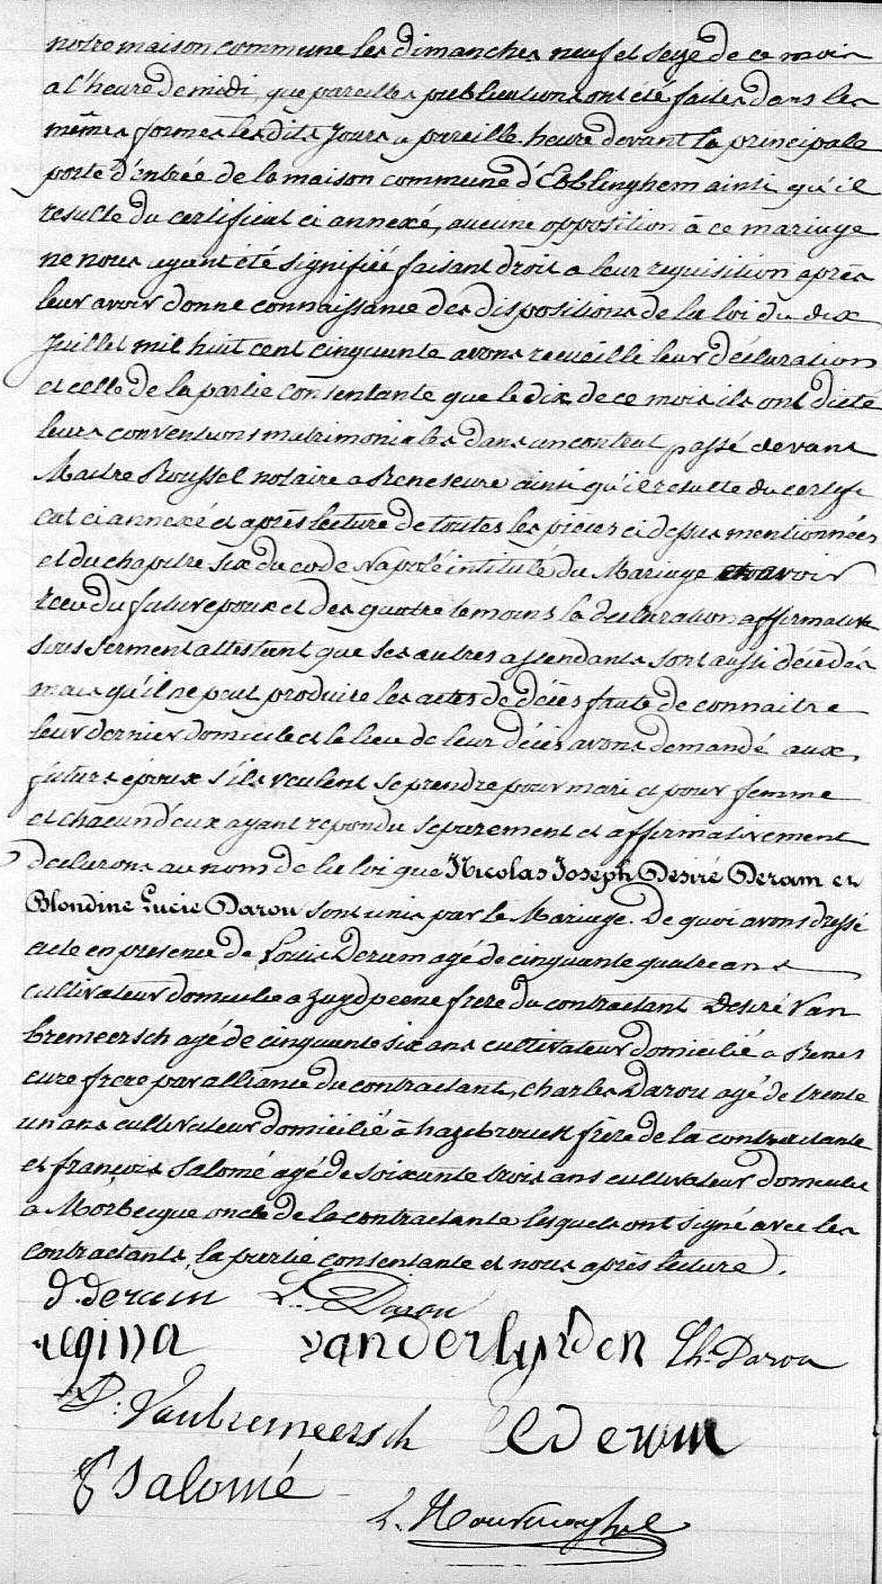 notre maison commune les dimanches neuf et seize de ce mois
a l'heure de midi, que pareilles publications ont été faites dans les
mêmes formes les dits jours a pareille heure devant la principale
porte d'entrée de la maison commune d'Ebblinghem ainsi qu'il
resulte du certificat ci annexé, aucune opposition à ce mariage
ne nous ayant été signifiée faisant droit a leur requisition après
leur avoir donné connaissance des dispositions de la loi du dix
Juillet mil huit cent cinquante avons recueilli leur déclaration
et celle de la partie consentante que le dix de ce mois ils ont dicté
leurs conventions matrimoniales dans un contrat passé devant
Maitre Roussel notaire a Renescure ainsi qu'il resulte du certifi
cat ci annexé et après lecture de toutes les pièces ci dessus mentionnées
et du chapitre six du code Napolé intitulé du Mariage et avoir
recu du futur epoux et des quatre temoins la declaration affirmative
sous serment attestant que ses autres assendants sont aussi décédés
mais qu'il ne peut produire les actes de décès faute de connaitre
leur dernier domicile et le lieu de leur décès avons demandé aux
futurs époux s'ils veulent se prendre pour mari et pour femme
et chacun d'eux ayant repondu separement et affirmativement
declarons au nom de la loi que Nicolas Joseph Desiré Deram et
Blondine Lucie Darou sont unis par le Mariage. De quoi avons dressé
acte en presence de Louis Deram agé de cinquante quatre ans
cultivateur domicilie a Zuydpeene frere du contractant Desiré Van
bremeersch agé de cinquante six ans cultivateur domicilié a Renes
cure frere par alliance du contractant, Charles Darou agé de trente
un ans cultivateur domicilié à hazebrouck frère de la contractante
et françois Salomé agé de soixante trois ans cultivateur domicilié
a Morbecque oncle de la contractante lesquels ont signé avec les
contractants, la partie consentante et nous après lecture.
d. deram L. Darou
regina vanderlynden Ch. Darou
D. Vanbremeersch L Deram
f Salomé